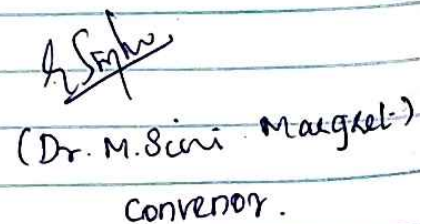 (Dr. M. Sini Margret)
Convenor.